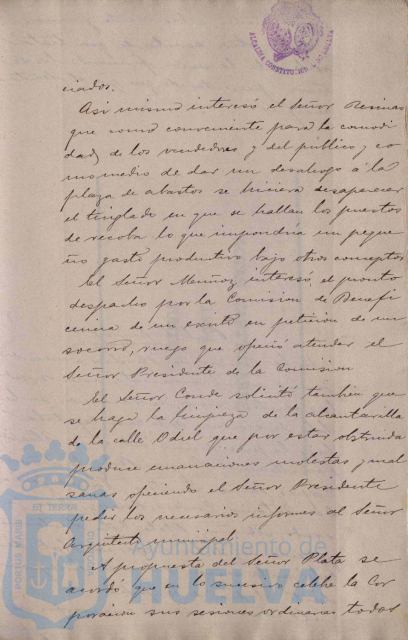 ALCALDIA CONSTITUCIONAL DE HUELVA
ciados.
Asi mismo interesó el Señor Resinas
que como conveniente para la comodi
dad, de los vendedores y del público y co
mo medio de dar un desahogo á la
plaza de abastos se hiciera desaparecer
el tinglado en que se hallan los puestos
de recoba lo que impondría un peque
ño gasto productivo bajo otros conceptos
El Señor Muñoz interesó el pronto
despacho por la Comision de Benefi
cencia de un escrito en peticion de un
socorro, ruego que ofreció atender el
Señor Presidente de la Comision
El Señor Conde solicitó tambien que
se haga la limpieza de la alcantarilla
de la calle Odiel que por estar obstruida
produce emanaciones molestas y mal
sanas ofreciendo el Señor Presidente
pedir los necesarios informes al Señor
Arquitecto municipal
A propuesta del Señor Plata se
acordó que en lo sucesivo celebre la Cor
poracion sus sesiones ordinarias todos
PORTUS MARIS ET TERRAE
Ayuntamiento de
HUELVA